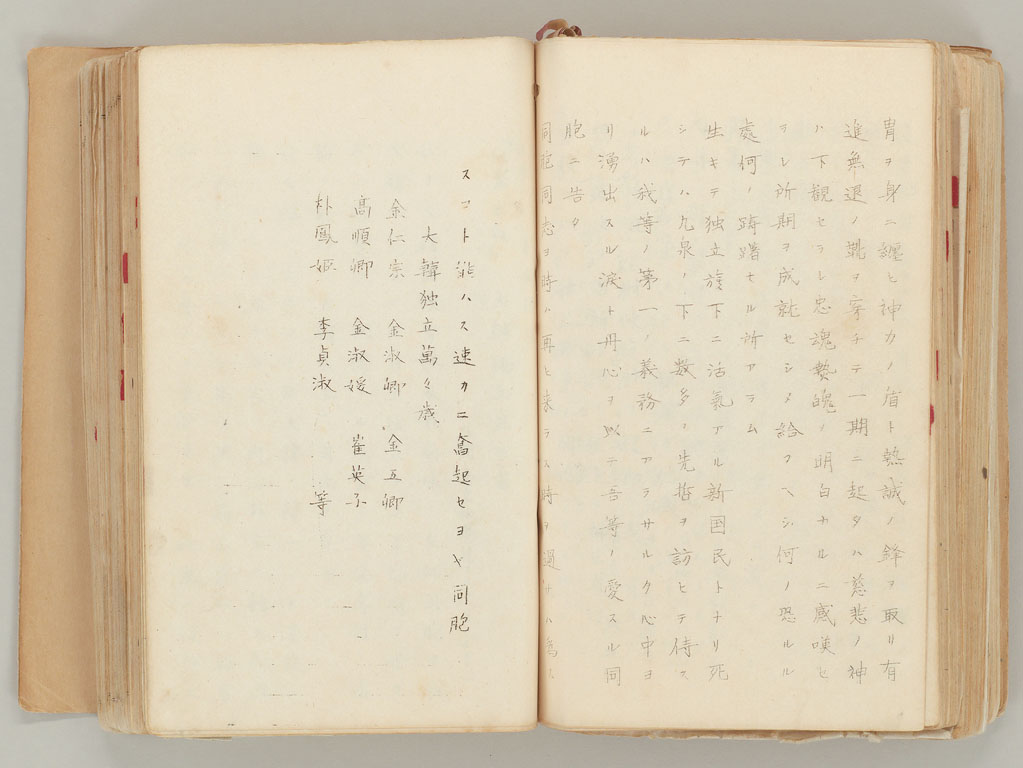 冑ヲ身ニ纒ヒ神カノ盾ト熱誠ノ鋒ヲ取リ有
進無退ノ靴ヲ穿チテ一期ニ起タハ慈悲ノ神
ハ下観セラレ忠魂毅魄ノ明白ナルニ感嘆セ
ラレ所期ヲ成就セシメ給フヘシ何ノ恐ルル
處何ノ躊躇セル所アラム
生キテ独立旗下ニ活氣アル新国民トナリ死
シテハ九泉ノ下ニ数多ノ先哲ヲ訪ヒテ侍ス
ルハ我等ノ第一ノ義務ニアラサルク心中ヨ
リ湧出スル涙ト丹心ヲ以ニ吾等ノ愛スル同
胞ニ告ク
同胞同志ヨ時ハ再ヒ来ラス時ヲ過サハ為
スコト能ハス速カニ奮起セヨヤ同胞
大韓独立萬々歳
金仁宗 金淑卿 金互卿
高順卿 金淑媛 崔英子
朴鳳姫 李貞淑 等